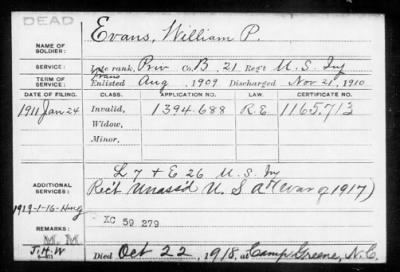 DEAD
NAME OF SOLDIER: Evans, William P.
SERVICE: Late rank, Priv Co. B, 21 Reg't U.S. Inf
TERM OF SERVICE: Trans Enlisted Aug, 1909 Discharged Nov 21, 1910
DATE OF FILING. CLASS. APPLICATION NO. LAW. CERTIFICATE NO.
1911 Jan 24 Invalid, 1394.688 R.E. 1165.713
Widow,
Minor,
L 7 + E 26 U.S. Inf
ADDITIONAL SERVICES: Rec't Unass'd U.S. a (War of 1917)
1919-1-16-
XC 59 279
REMARKS: M. M.
J.H.W Died Oct 22, 1918, at Camp Greene, N.C.